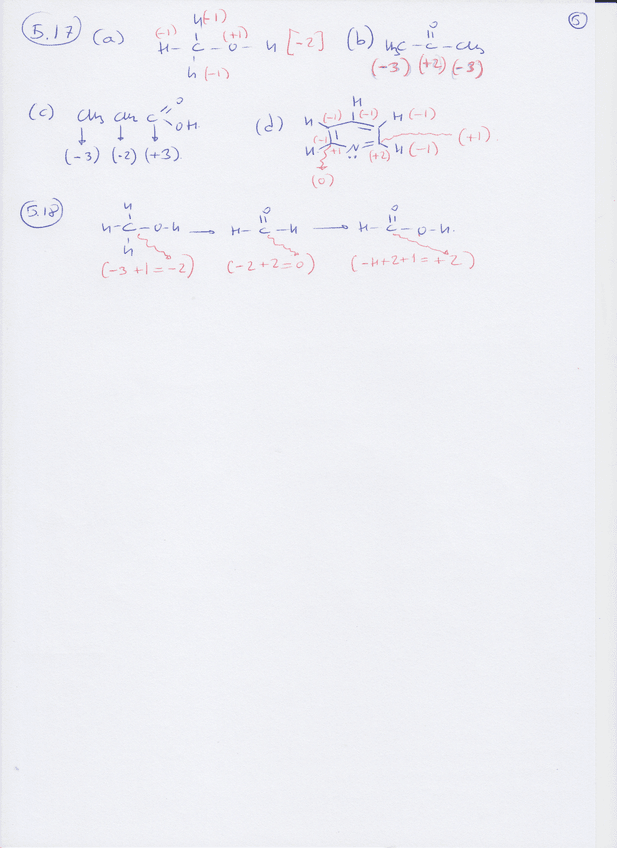 5
5.17 (a) H(-1) (-1) H - C - O - H (+1) H (-1) [-2] (b) H3C - C - CH3 O (-3) (+2) (-3)
(c) CH3 CH2 C O OH (-3) (-2) (+3) (d) H H H H H N (-1) (-1) (-1) (-1) (-1) +1 (+2) (+1) (0)
5.18 H H-C-O-H H → O H-C-H → O H-C-O-H
(-3+1=-2) (-2+2=0) (-H+2+1=+2)